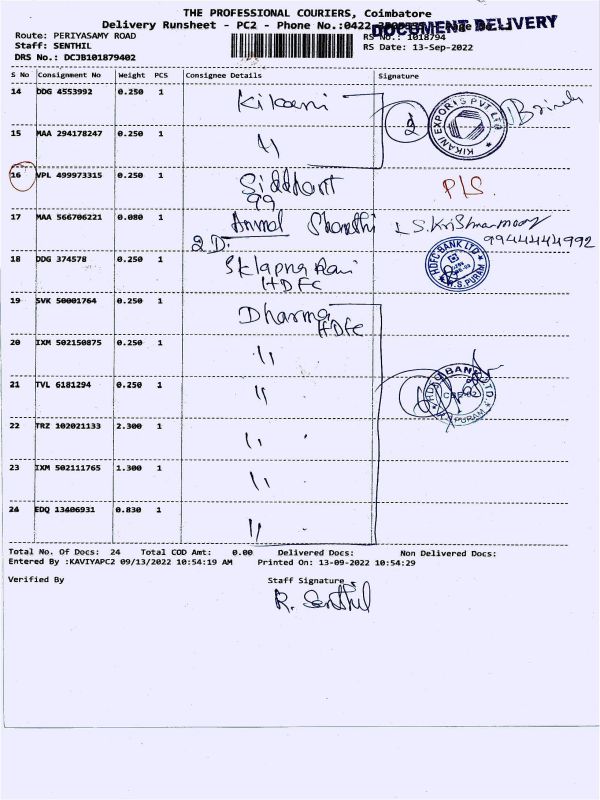 THE PROFESSIONAL COURIERS, Coimbatore
Delivery Runsheet - PC2 - Phone No.:0422
DOCUMENT DELIVERY
Route: PERIYASAMY ROAD
RS No.: 1018794
Staff: SENTHIL
RS Date: 13-Sep-2022
DRS No.: DCJB101879402
S No Consignment No Weight PCS Consignee Details Signature
14 DDG 4553992 0.250 1 Kikani
2
KIKANI EXPORTS PVT LTD
15 MAA 294178247 0.250 1 "
16 VPL 499973315 0.250 1 Siddhant P/S.
99
17 MAA 566706221 0.080 1 Anmol Shanthi S. Krishnamoory
2D. 9944444992
18 DDG 374578 0.250 1
HDFC
HDFC BANK LTD
R.S. PURAM
19 SVK 50001764 0.250 1 Dharma
HDFC
20 IXM 502150875 0.250 1 "
21 TVL 6181294 0.250 1 "
HDFC BANK LTD.
PURAM
22 TRZ 102021133 2.300 1 "
23 IXM 502111765 1.300 1 "
24 EDQ 13406931 0.830 1 "
Total No. Of Docs: 24 Total COD Amt: 0.00 Delivered Docs: Non Delivered Docs:
Entered By :KAVIYAPC2 09/13/2022 10:54:19 AM Printed On: 13-09-2022 10:54:29
Verified By Staff Signature
R. Senthil